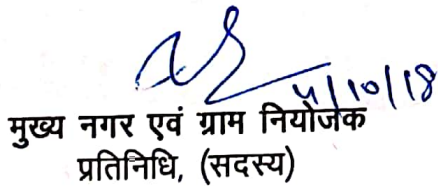 4/10/18
मुख्य नगर एवं ग्राम नियोजक
प्रतिनिधि, (सदस्य)